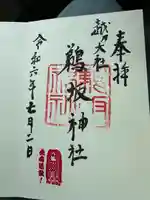 奉拝
越乃大社
鵜坂神社
令和六年七月二日